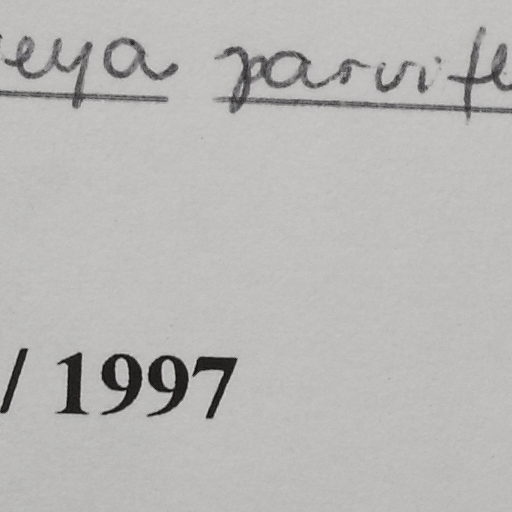 eya parvifl
/ 1997